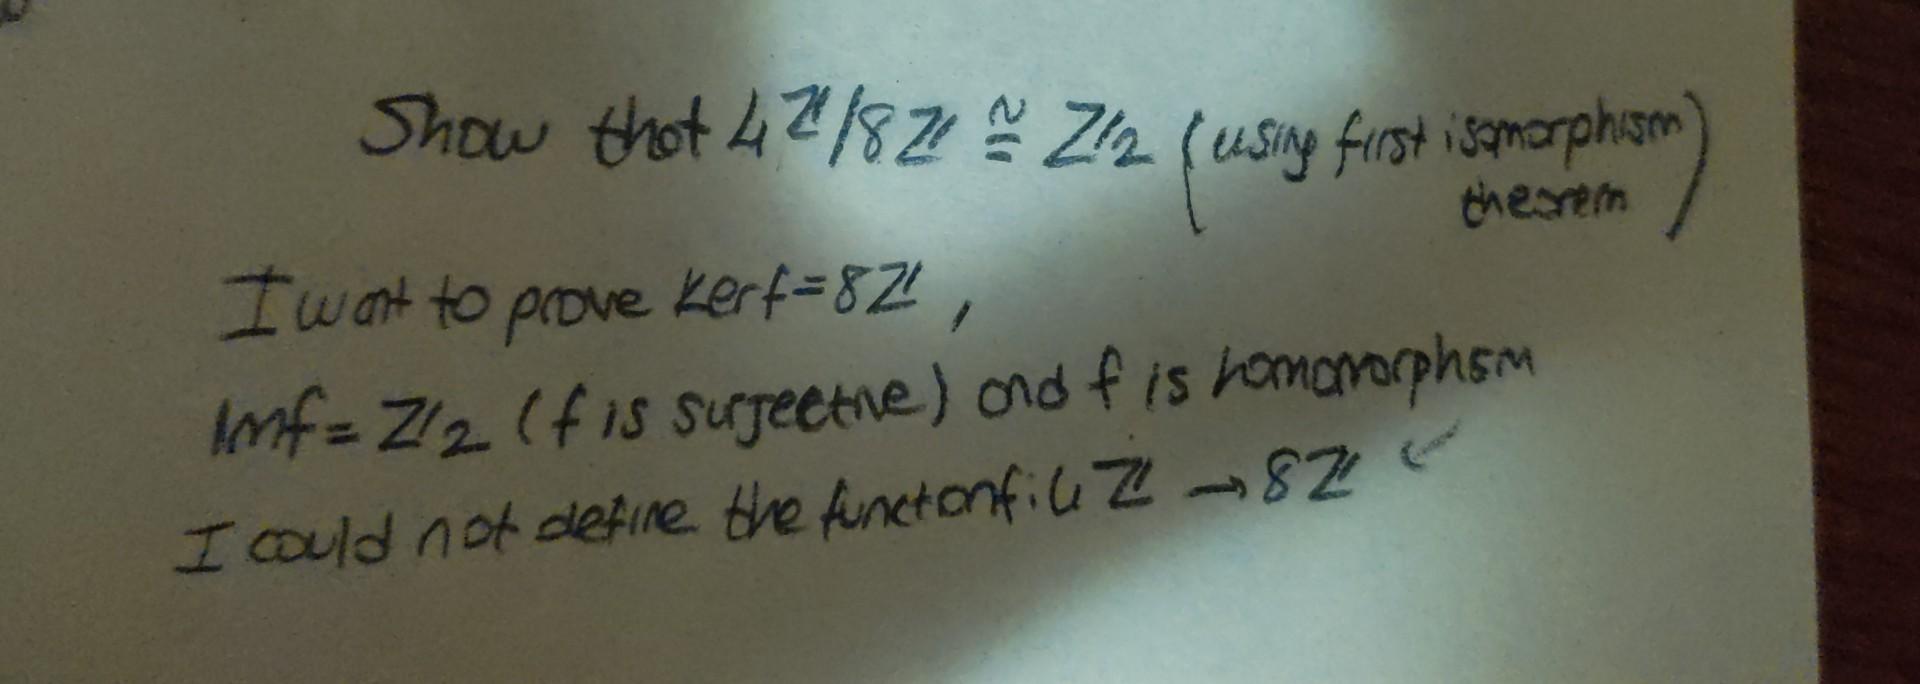 Show that 4ℤ/8ℤ ≅ ℤ₂ (using first isomorphism theorem)
I want to prove Kerf=8ℤ,
Imf=ℤ₂ (f is surjective) and f is homomorphism
I could not define the function f: 4ℤ → 8ℤ